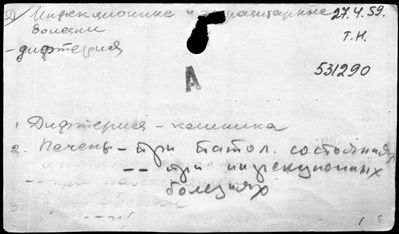 Д) Инфекционные и паразитарные 27.4.59.
болезни Т.Н.
- дифтерия
531290
А
1. Дифтерия - клиника
2. Печень - при патол. состояниях
-- при инфекционных
болезнях